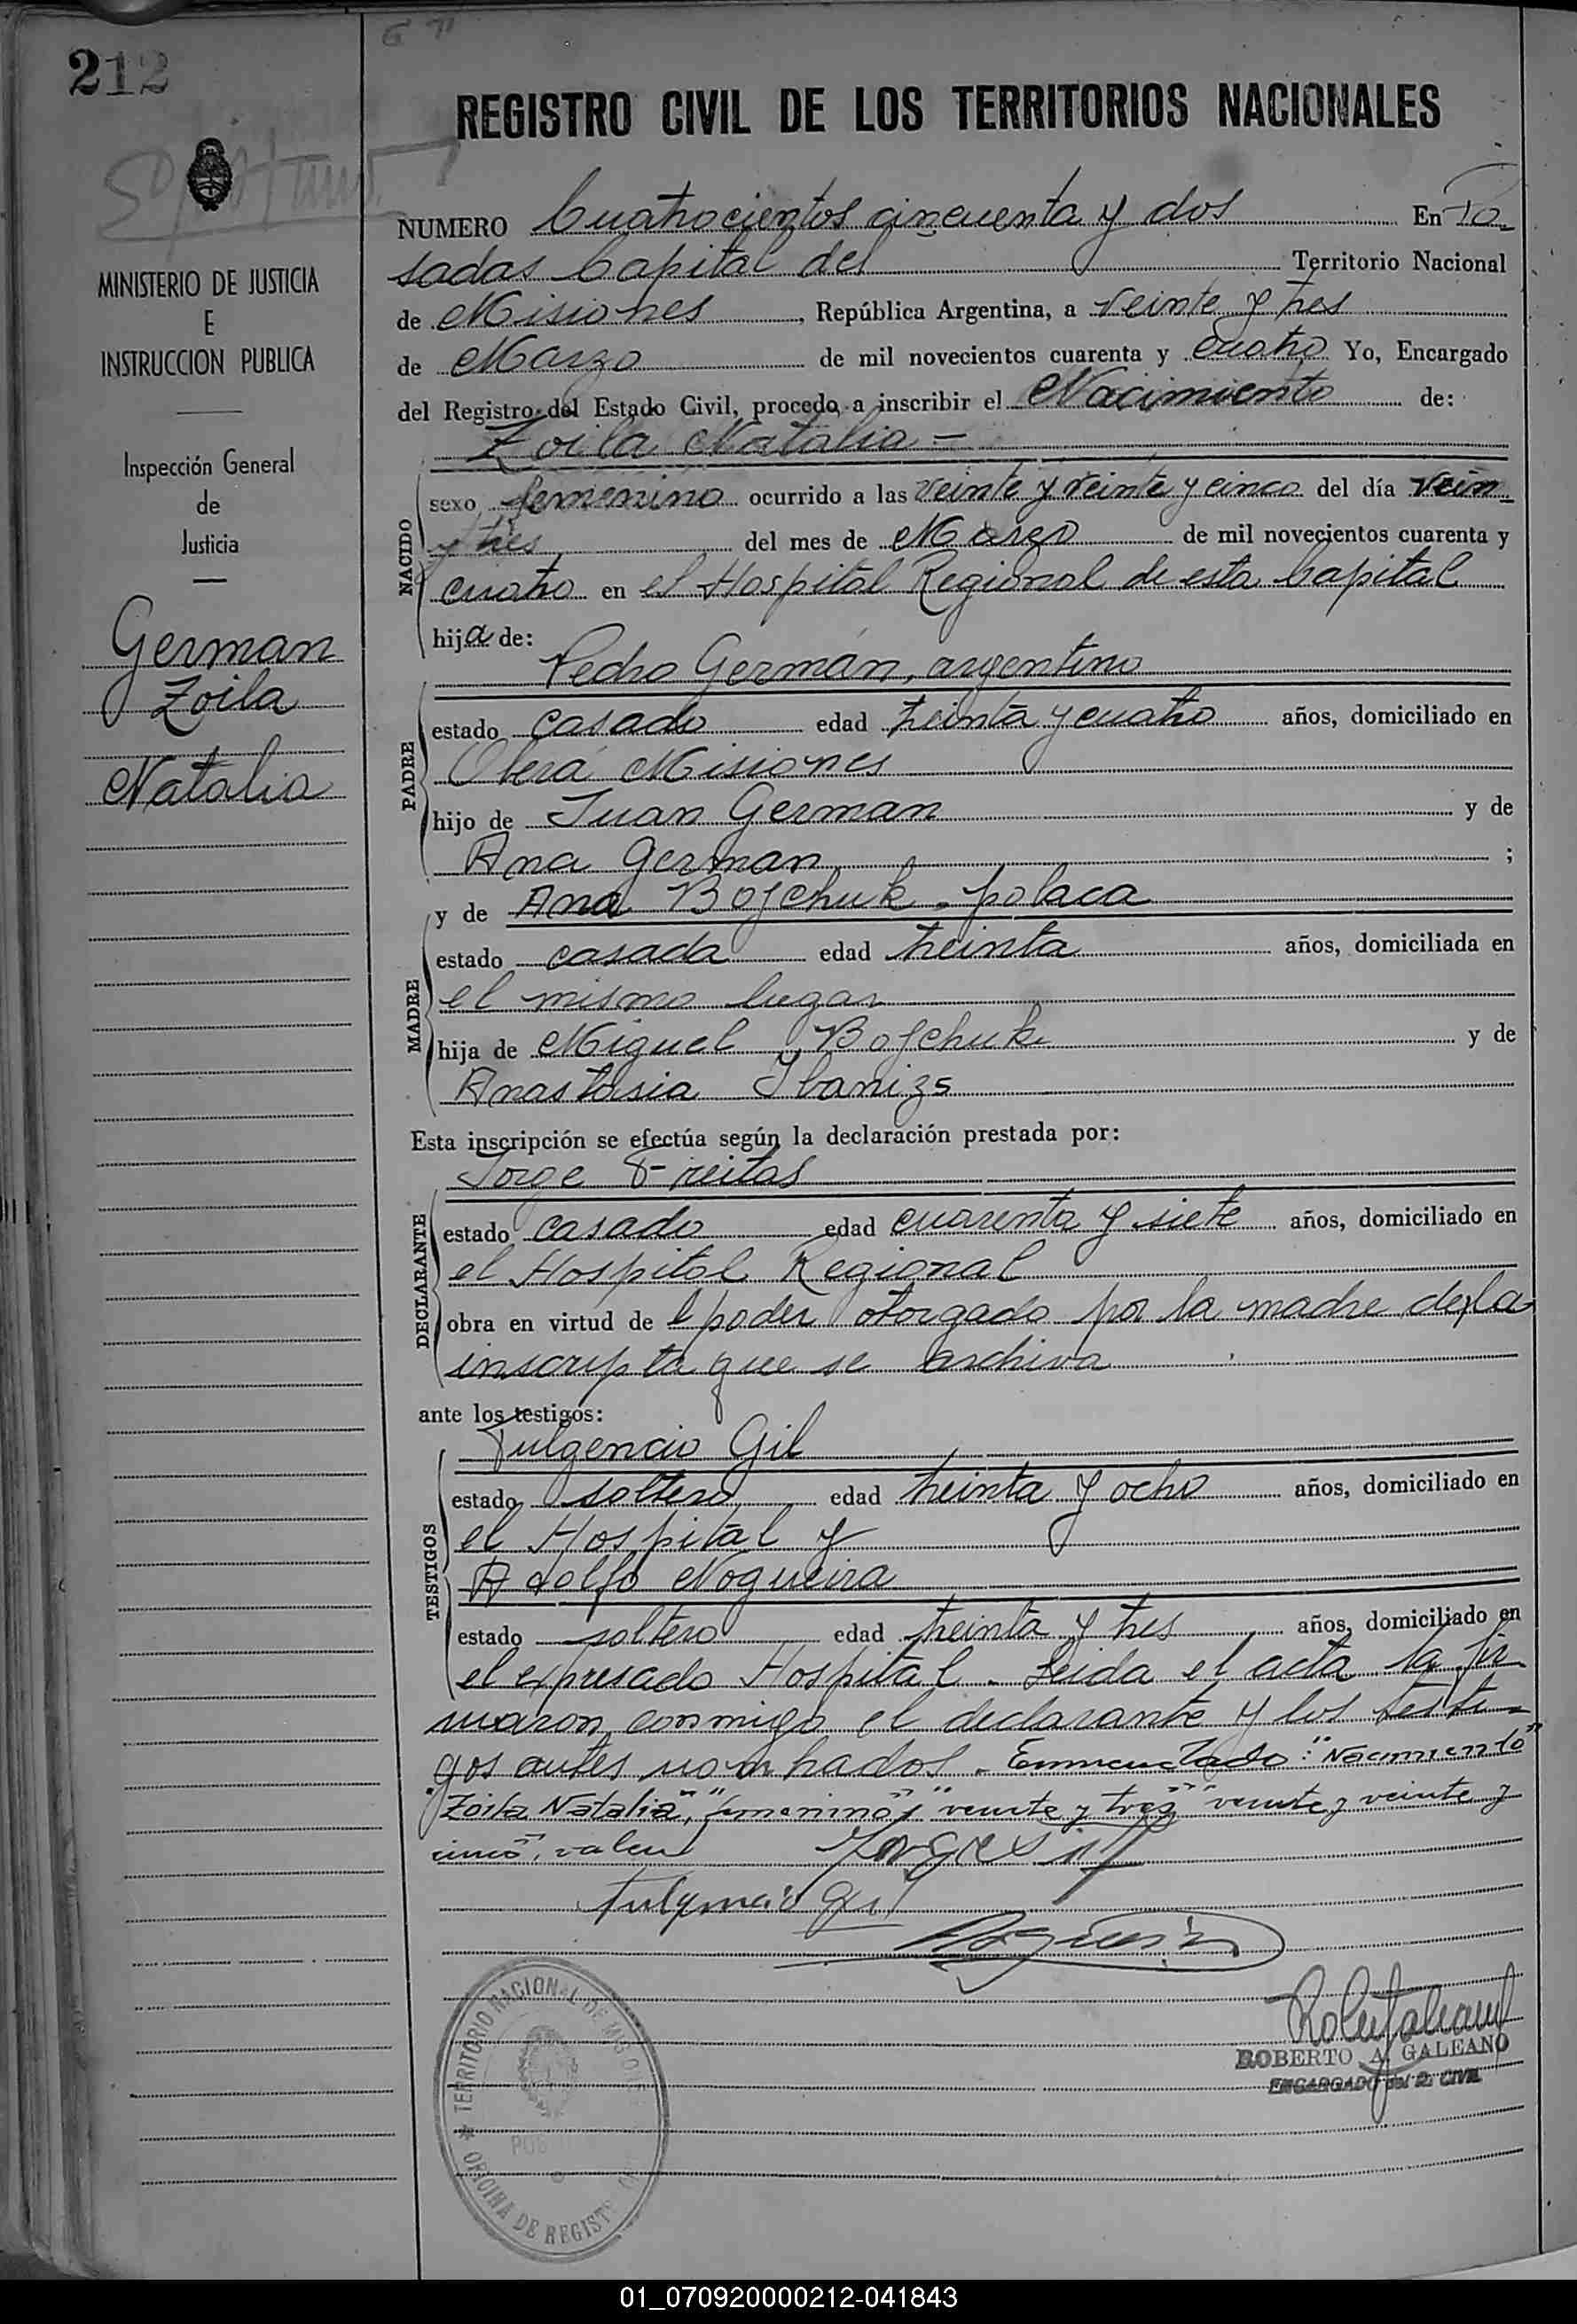 212
REGISTRO CIVIL DE LOS TERRITORIOS NACIONALES
MINISTERIO DE JUSTICIA
E
INSTRUCCION PUBLICA
Inspección General
de
Justicia
German
Zoila
Natalia
NUMERO Cuatrocientos cincuenta y dos En Po
sadas Capital del Territorio Nacional
de Misiones, República Argentina, a veinte y tres
de Marzo de mil novecientos cuarenta y cuatro Yo, Encargado
del Registro del Estado Civil, procedo a inscribir el Nacimiento de:
Zoila Natalia -
NACIDO
sexo femenino ocurrido a las veinte y veinte y cinco del día vein
y tres del mes de Marzo de mil novecientos cuarenta y
cuatro en el Hospital Regional de esta Capital
hija de:
Pedro Germán, argentino
PADRE
estado casado edad treinta y cuatro años, domiciliado en
Oberá Misiones
hijo de Juan German y de
Ana German ;
y de Ana Bojchuk - polaca
MADRE
estado casada edad treinta años, domiciliada en
el mismo lugar
hija de Miguel Bojchuk y de
Anastasia Ibanizs
Esta inscripción se efectúa según la declaración prestada por:
Jorge Freitas
DECLARANTE
estado casado edad cuarenta y siete años, domiciliado en
el Hospital Regional
obra en virtud de l poder otorgado por la madre de la
inscripta que se archiva
ante los testigos:
Fulgencio Gil
TESTIGOS
estado soltero edad treinta y ocho años, domiciliado en
el Hospital y
Adolfo Nogueira
estado soltero edad treinta y tres años, domiciliado en
el expresado Hospital. Leida el acta la fir
maron conmigo el declarante y los testi-
gos antes nombrados. Enmendado: "Nacimiento"
"Zoila Natalia", "femenino", "veinte y tres" "veinte y veinte y
cinco", valen
Fulgencio Gil
TERRITORIO NACIONAL DE MISIONES
OFICINA DE REGIST
ROBERTO A. GALEANO
ENCARGADO del R. CIVIL
01_070920000212-041843